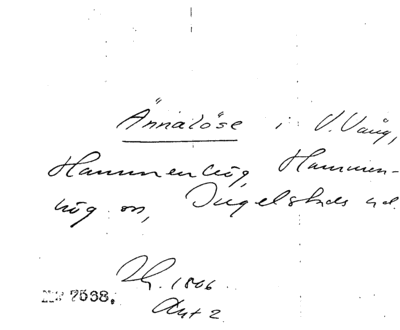 Ännalöse i V. Vång,
Hammenhög, Hammen-
hög sn, Ingelstads hd.
1806
Akt 2